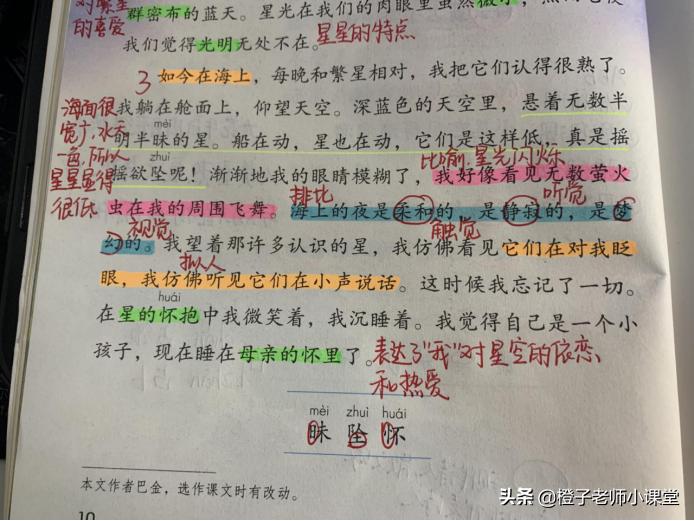 对繁星
的喜爱
群密布的蓝天。星光在我们的肉眼里虽然微小，
我们觉得光明无处不在。星星的特点
3 如今在海上，每晚和繁星相对，我把它们认得很熟了。
海面很
宽广，水天
一色，所以
星星显得
很低
我躺在舱面上，仰望天空。深蓝色的天空里，悬着无数半
mèi
明半昧的星。船在动，星也在动，它们是这样低，真是摇
zhuì
比喻，星光闪烁
摇欲坠呢！渐渐地我的眼睛模糊了，我好像看见无数萤火
排比
听觉
虫在我的周围飞舞。海上的夜是柔和的，是静寂的，是梦
视觉
触觉
幻的。我望着那许多认识的星，我仿佛看见它们在对我眨
拟人
眼，我仿佛听见它们在小声说话。这时候我忘记了一切。
huái
在星的怀抱中我微笑着，我沉睡着。我觉得自己是一个小
孩子，现在睡在母亲的怀里了。
表达了“我”对星空的依恋
和热爱
mèi zhuì huái
昧 坠 怀
本文作者巴金，选作课文时有改动。
10
头条 @橙子老师小课堂